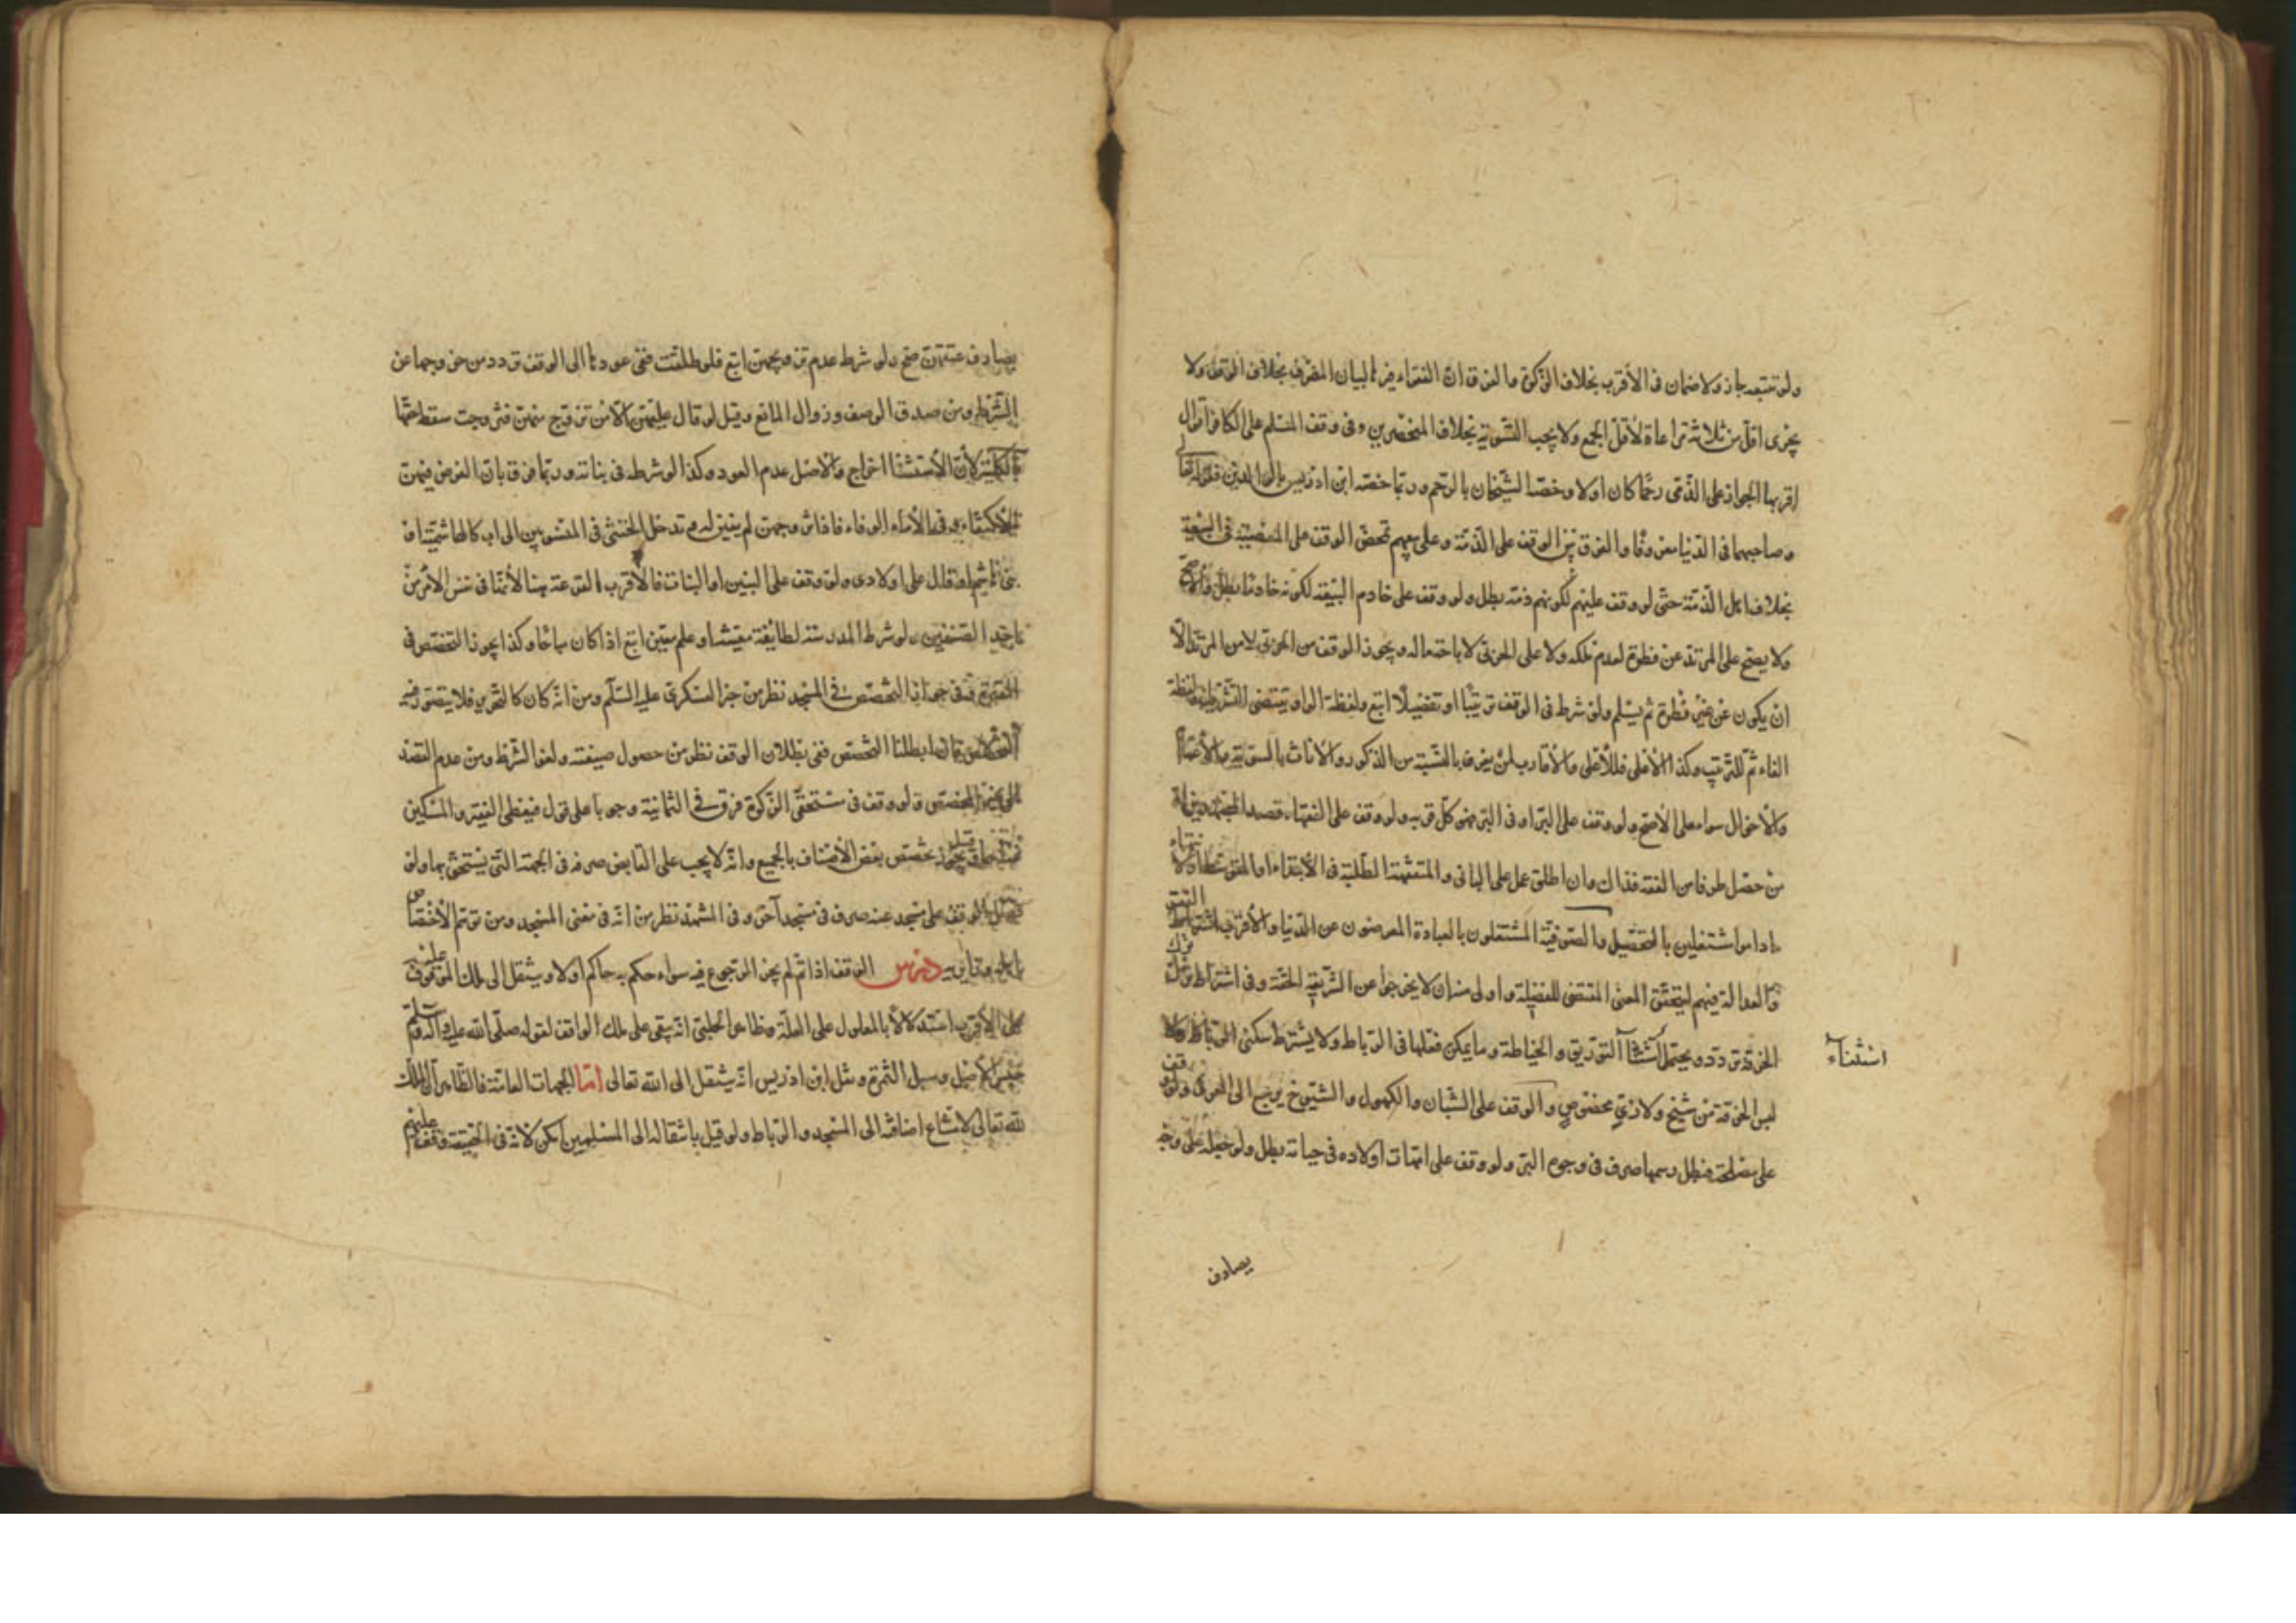 ولو تتبعه جاز ولا ضمان فى الأقرب بخلاف الزكوة ما لفرق ان الفقراء فيها لبيان المصرف بخلاف الوقف ولا
يجزى اقل من ثلاثة مراعاة لأقل الجمع ولا يجب التسوية بخلاف المنحصرين وفى وقف المسلم على الكافر اقوال
اقربها الجواز على الذمى رحما كان اولا وخصه الشيخان بالرحم وربما خصه ابن ادريس بالوالدين لقوله تعالى
وصاحبهما فى الدنيا معروفا والفرق بين الوقف على الذمة وعلى بيعهم تمحض الوقف على المعصية فى البيعة
بخلاف اهل الذمة حتى لو وقف عليهم لكونهم ذمة بطل ولو وقف على خادم البيعة لكونه خادما بطل والأصح
ولا يصح على المرتد عن فطرة لعدم تملكه ولا على الحربى لاباحة ماله ويجوز الوقف من الحربى لا من المرتد الا
ان يكون عن غير فطرة ثم يسلم ولو شرط فى الوقف ترتيبا او تفضيلا اتبع ولفظة الواو يقتضى التشريك ولفظة
الفاء ثم للترتيب وكذا الأعلى فالأعلى والأقارب لمن يعرف بالنسبة من الذكور والاناث بالسوية والأعمام
والأخوال سواء على الأصح ولو وقف على البر او فى البر فهو كل قربه ولو وقف على الفقهاء قصد المجتهدين او
من حصل طرفا من الفقه فذاك وان اطلق حمل على الثانى والمتفقهة الطلبة فى الأبتداء او المتوسط او الانتهاء
ما داموا مشتغلين بالتحصيل والصوفية المشتغلون بالعبادة المعرضون عن الدنيا والأقرب اشتراط الفقر
والعدالة فيهم ليتحقق المعنى المقتضى للفضيلة واولى منه ان لا يخرجوا عن الشريعة الحقة وفى اشتراط ترك
الحرفة تردد ويحتمل استثناآ التوريق والخياطة وما يمكن فعلها فى الرباط ولا يشترط سكنى الرباط ولا
لبس الخرقة من شيخ ولا زى مخصوص والوقف على الشبان والكهول والشيوخ يرجع الى العرف ولو وقف
على مصلحة فبطل رسمها صرف فى وجوه البر ولو وقف على امهات اولاده فى حياته بطل ولو جعله على وجه
استثناء
يصادف
يصادف عتقهن صح ولو شرط عدم تزويجهن اتبع فلو طلقت ففى عودها الى الوقف تردد من خروجها عن
الشرط ومن صدق الوصف وزوال المانع وقيل لو قال عليهن الا من تزوج منهن فتزوجت سقط حقها
بالكلية لأن الأستثنا اخراج والأصل عدم العود وكذا لو شرطه فى بناته وربما فرق بان الغرض فيهن
الاكتفاء وفى الأماء الوفاء فاذا تزوجهن لم يفين له وتدخل الخنثى فى المنسوبين الى اب كالهاشمية او
بنى هاشم او قال على اولادى ولو وقف على البنين او البنات فالأقرب القرعة هنا لأنها فى نفس الأمر من
احد الصنفين ولو شرط المدرسة لطائفة معينة او علم معين اتبع اذا كان مباحا وكذا يجوز التخصص فى
المقبرة وفى جواز التخصص فى المسجد نظر من خبر العسكرى عليه السلم ومن انه كان كالتحرير فلا يتصور فيه
التخصص فاذا ابطلنا التخصص ففى بطلان الوقف نظر من حصول صيغته ولغو الشرط ومن عدم القصد
الى غير المخصص ولو وقف فى مستحقى الزكوة فرق فى الثمانية وجوبا على قول فيعطى الفقير والمسكين
تخصص بعض الأصناف بالجميع وانه لا يجب على القابض صرفه فى الجهة التى يستحق بها ولو
الوقف على مسجد عنه صرف فى مسجد آخر وفى المشهد نظر من انه فى معنى المسجد ومن توهم الأختصاص
درس الوقف اذا تم لم يجز الرجوع فيه سواء حكم به حاكم اولا وينتقل الى ملك الموقوف عليه
على الأقرب استدلالا بالمعلول على العلة وظاهر الحلبى انه يبقى على ملك الواقف لقوله صلى الله عليه وآله وسلم
حبس الأصل وسبل الثمرة ونقل ابن ادريس انه ينتقل الى الله تعالى اما الجهات العامة فالظاهر ان الملك
لله تعالى لامتناع اضافته الى المسجد والرباط ولو قيل بانتقاله الى المسلمين امكن لانه فى الحقيقة وقف عليهم